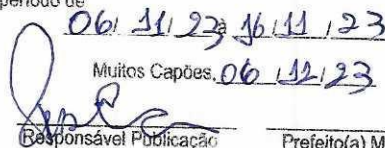 período de
06/11/23 a 16/11/23
Muitos Capões, 06/12/23
Responsável Publicação Prefeito(a) M